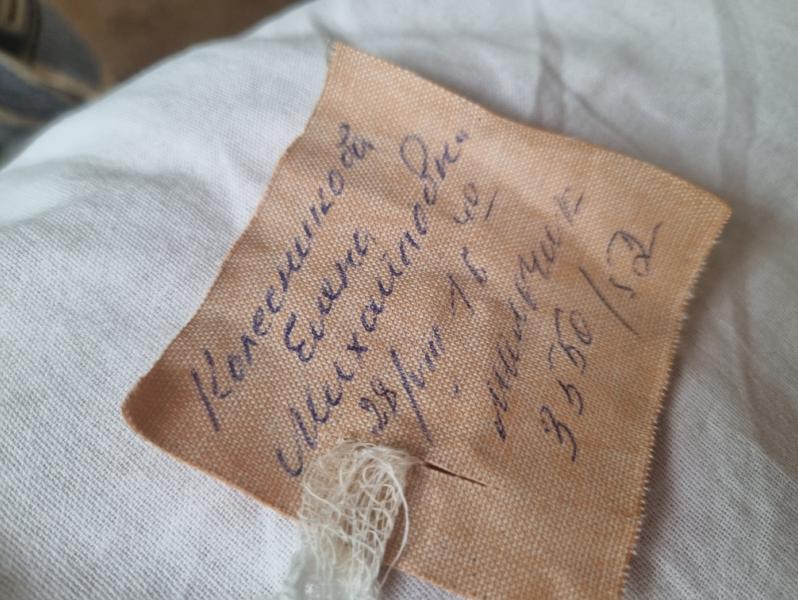 Колесникова
Елена
Михайловна
28/VIII 16 40
мальчик
3550/52